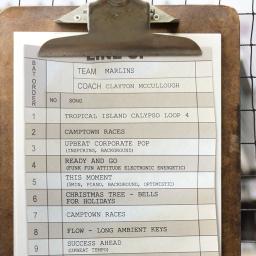 LINE UP
TEAM MARLINS
COACH CLAYTON MCCULLOUGH
BAT ORDER
NO SONG
1 TROPICAL ISLAND CALYPSO LOOP 4
2 CAMPTOWN RACES
3 UPBEAT CORPORATE POP
(INSPIRING, BACKGROUND)
4 READY AND GO
(FUNK FUN ATTITUDE ELECTRONIC ENERGETIC)
5 THIS MOMENT
(PIANO, BACKGROUND, OPTIMISTIC)
6 CHRISTMAS TREE - BELLS
FOR HOLIDAYS
7 CAMPTOWN RACES
8 FLOW - LONG AMBIENT KEYS
9 SUCCESS AHEAD
(UPBEAT TEMPO)